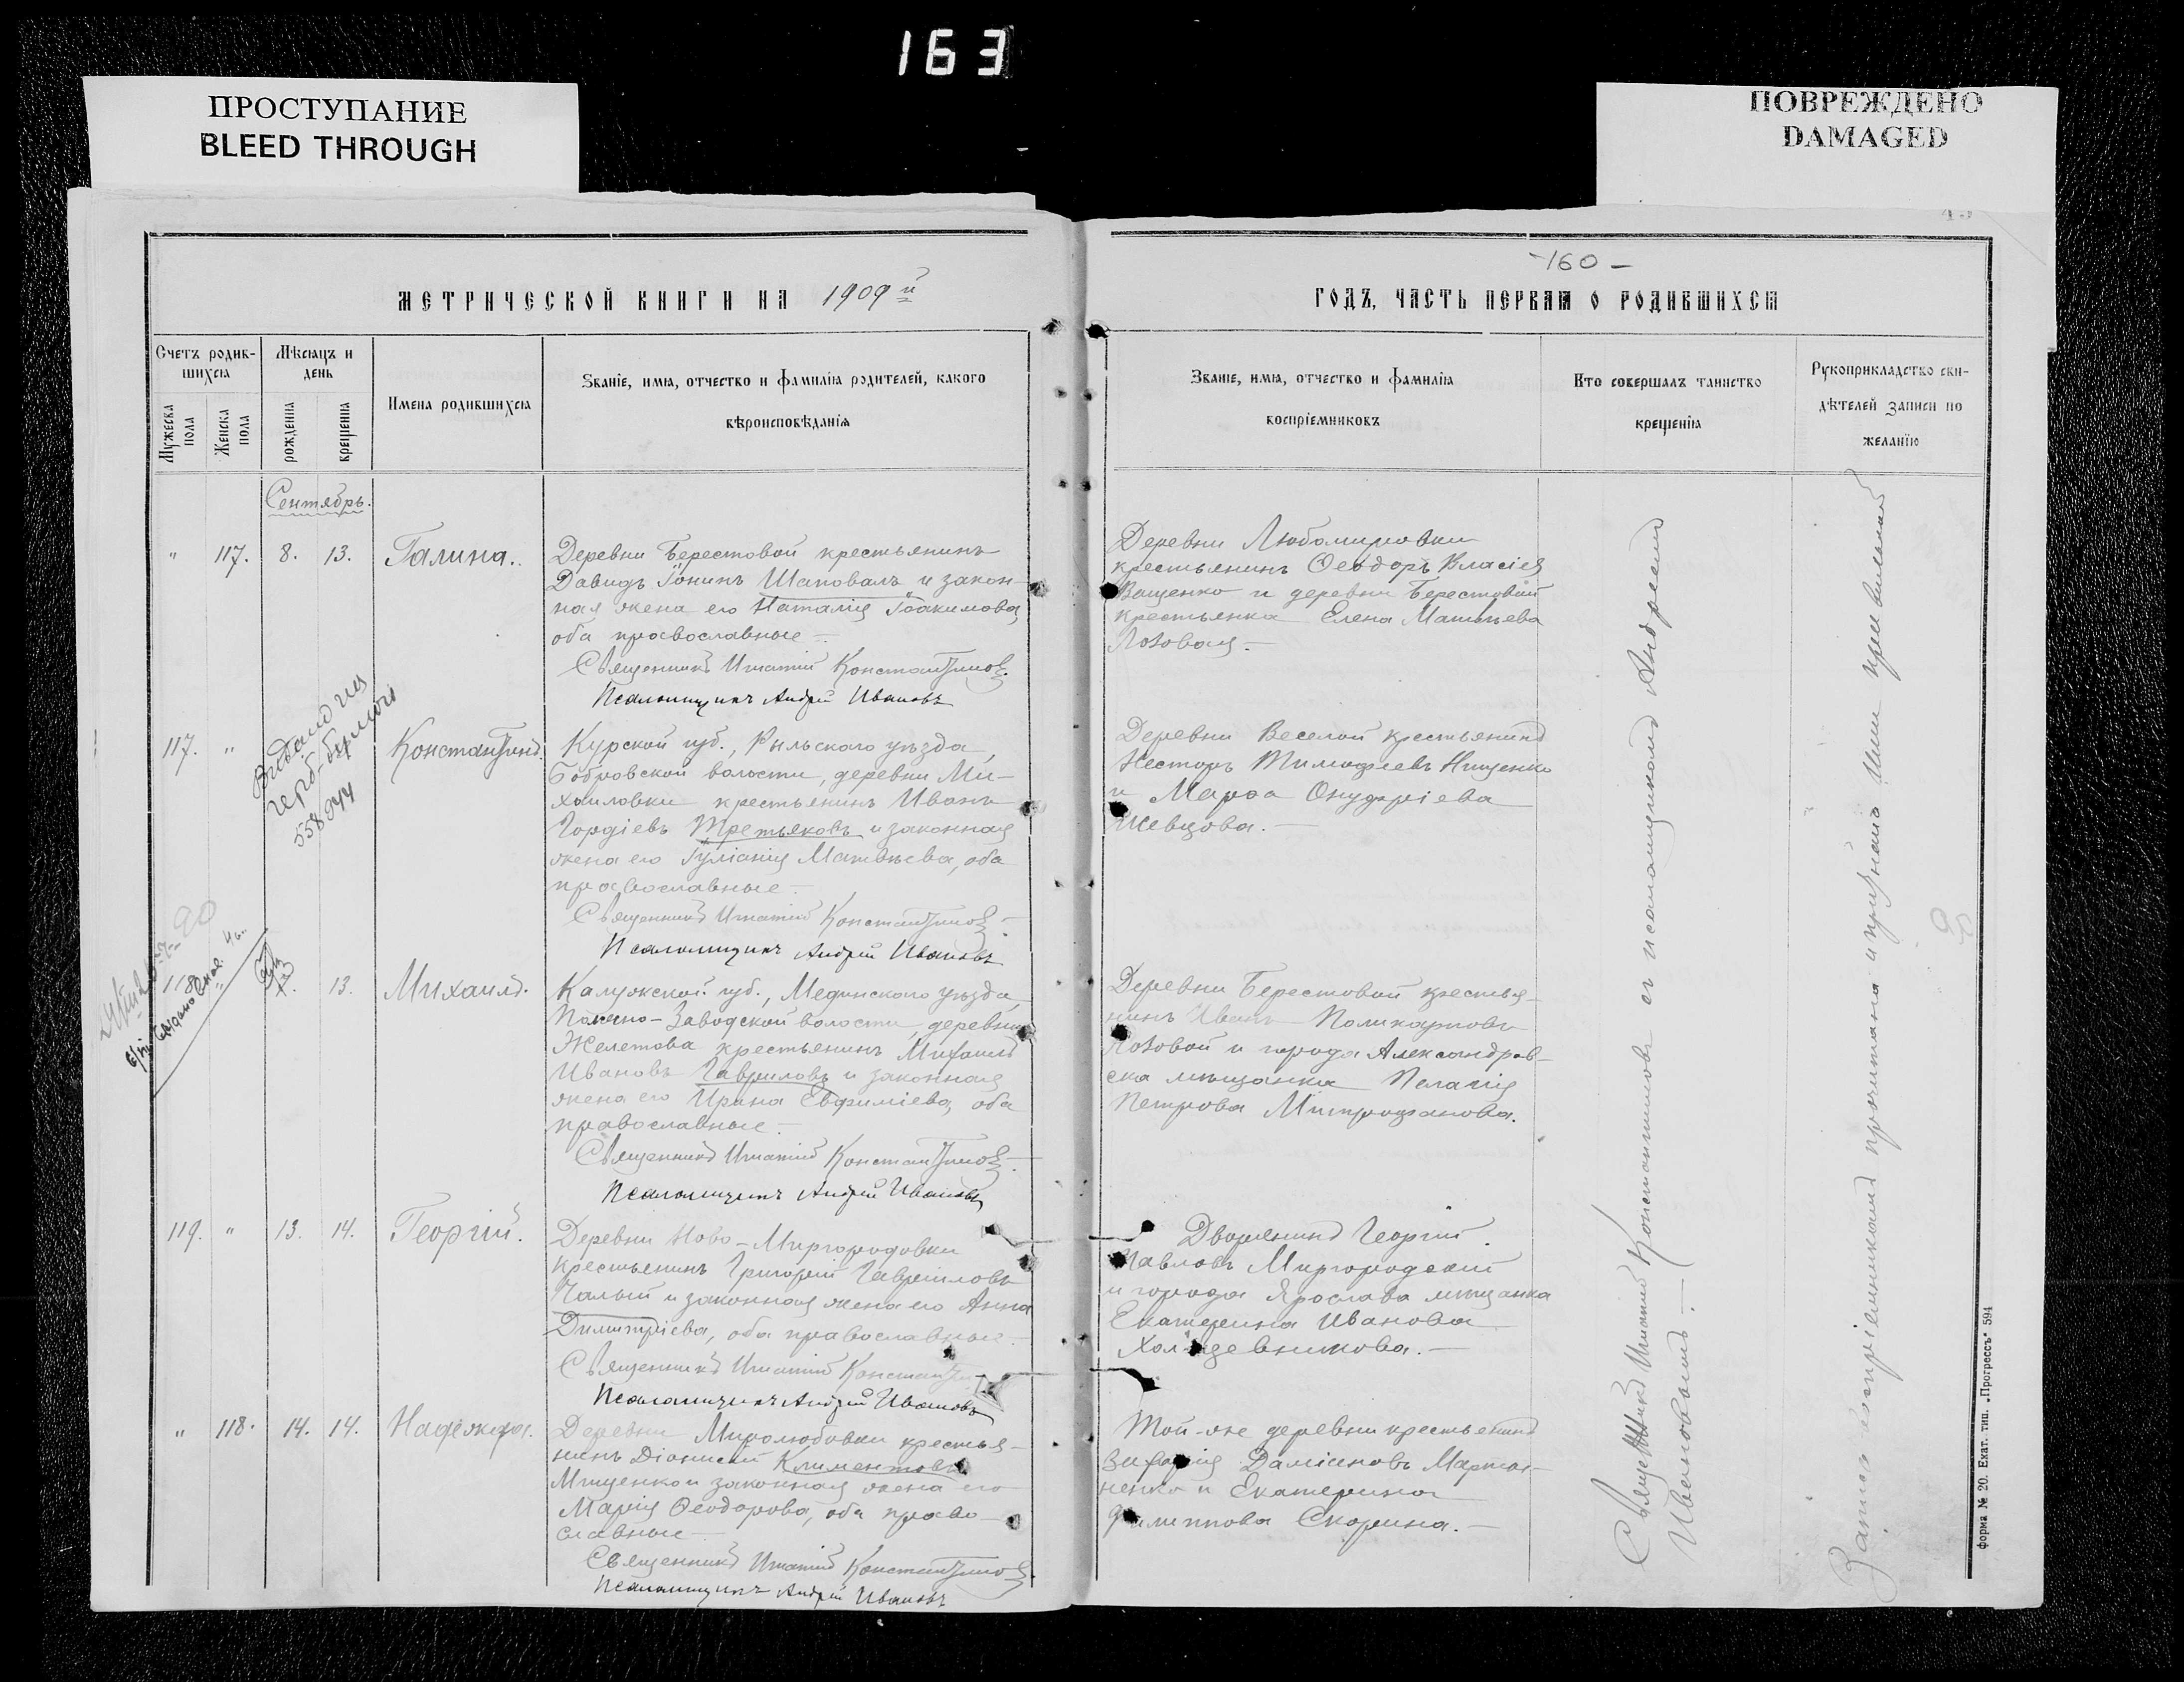 163
ПРОСТУПАНИЕ
BLEED THROUGH
ПОВРЕЖДЕНО
DAMAGED
МЕТРИЧЕСКОЙ КНИГИ НА 1909й
Счетъ родив-
шихся
Мѣсяцъ и
день
Мужеска
пола
Женска
пола
рожденія
крещенія
Имена родившихся
Званіе, имя, отчество и фамилія родителей, какого
вѣроисповѣданія
Сентябрь.
" 117. 8. 13. Галина.
Деревни Берестовой крестьянинъ
Давидъ Іонинъ Шаповалъ и закон-
ная жена его Наталія Іоакимова,
оба православные –
Священникъ Игнатій Константиновъ.
Псаломщикъ Андрей Ивановъ
117. " Константинъ.
Выдано
герб. бумаги
Курской губ., Рыльскаго уѣзда,
Бобровской волости, деревни Ми-
хайловки крестьянинъ Иванъ
Гордіевъ Третьяковъ и законная
жена его Іуліанія Матвѣева, оба
православные –
Священникъ Игнатій Константиновъ.
Псаломщикъ Андрей Ивановъ
118 13. Михаилъ.
Калужской губ., Медынскаго уѣзда,
Заводской волости, деревни
Желетова крестьянинъ Михаилъ
Ивановъ Гавриловъ и законная
жена его Ирина Евфиміева, оба
православные –
Священникъ Игнатій Константиновъ.
Псаломщикъ Андрей Ивановъ
119. " 13. 14. Георгій.
Деревни Ново-Миргородовки
крестьянинъ Григорій Гавріиловъ
Чалый и законная жена его Анна
Димитріева, оба православные –
Священникъ Игнатій
Псаломщикъ Андрей Ивановъ
" 118. 14. 14. Надежда.
Деревни Миролюбовки крестья-
нинъ Діонисій Климентовъ
Мищенко и законная жена его
Марія Ѳеодорова, оба право-
славные –
Священникъ Игнатій Константиновъ
Псаломщикъ Андрей Ивановъ
-160-
ГОДЪ, ЧАСТЬ ПЕРВАЯ О РОДИВШИХСЯ
Званіе, имя, отчество и фамилія
воспріемниковъ
Кто совершалъ таинство
крещенія
Рукоприкладство сви-
дѣтелей записи по
желанію
Деревни Любомировки
крестьянинъ Ѳеодоръ Власіевъ
Ващенко и деревни Берестовой
крестьянка Елена Матвѣева
Лозовая. –
Деревни Веселой крестьянинъ
Несторъ Тимофеевъ Нищенко
и Марѳа Онуфріева
Шевцова. –
Деревни Берестовой крестья-
нинъ Иванъ Поликарповъ
Лозовой и города Александров-
ска мѣщанка Пелагія
Петрова Митрофанова.
Дворянинъ Георгій
Павловъ Миргородскій
и города Ярослава мѣщанка
Екатерина Иванова
Той-же деревни крестьянинъ
Даміановъ Марты-
ненко и Екатерина
Филиппова Скорина. –
Священникъ Игнатій Константиновъ съ псаломщикомъ Андреемъ
Ивановымъ. –
форма № 20. Екат. тип. „Прогрессъ" 594